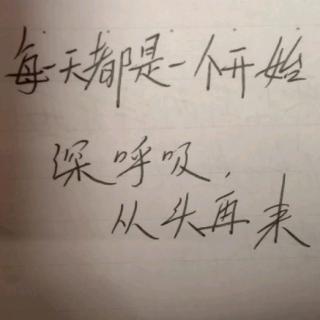 每一天都是一个开始
深呼吸,
从头再来